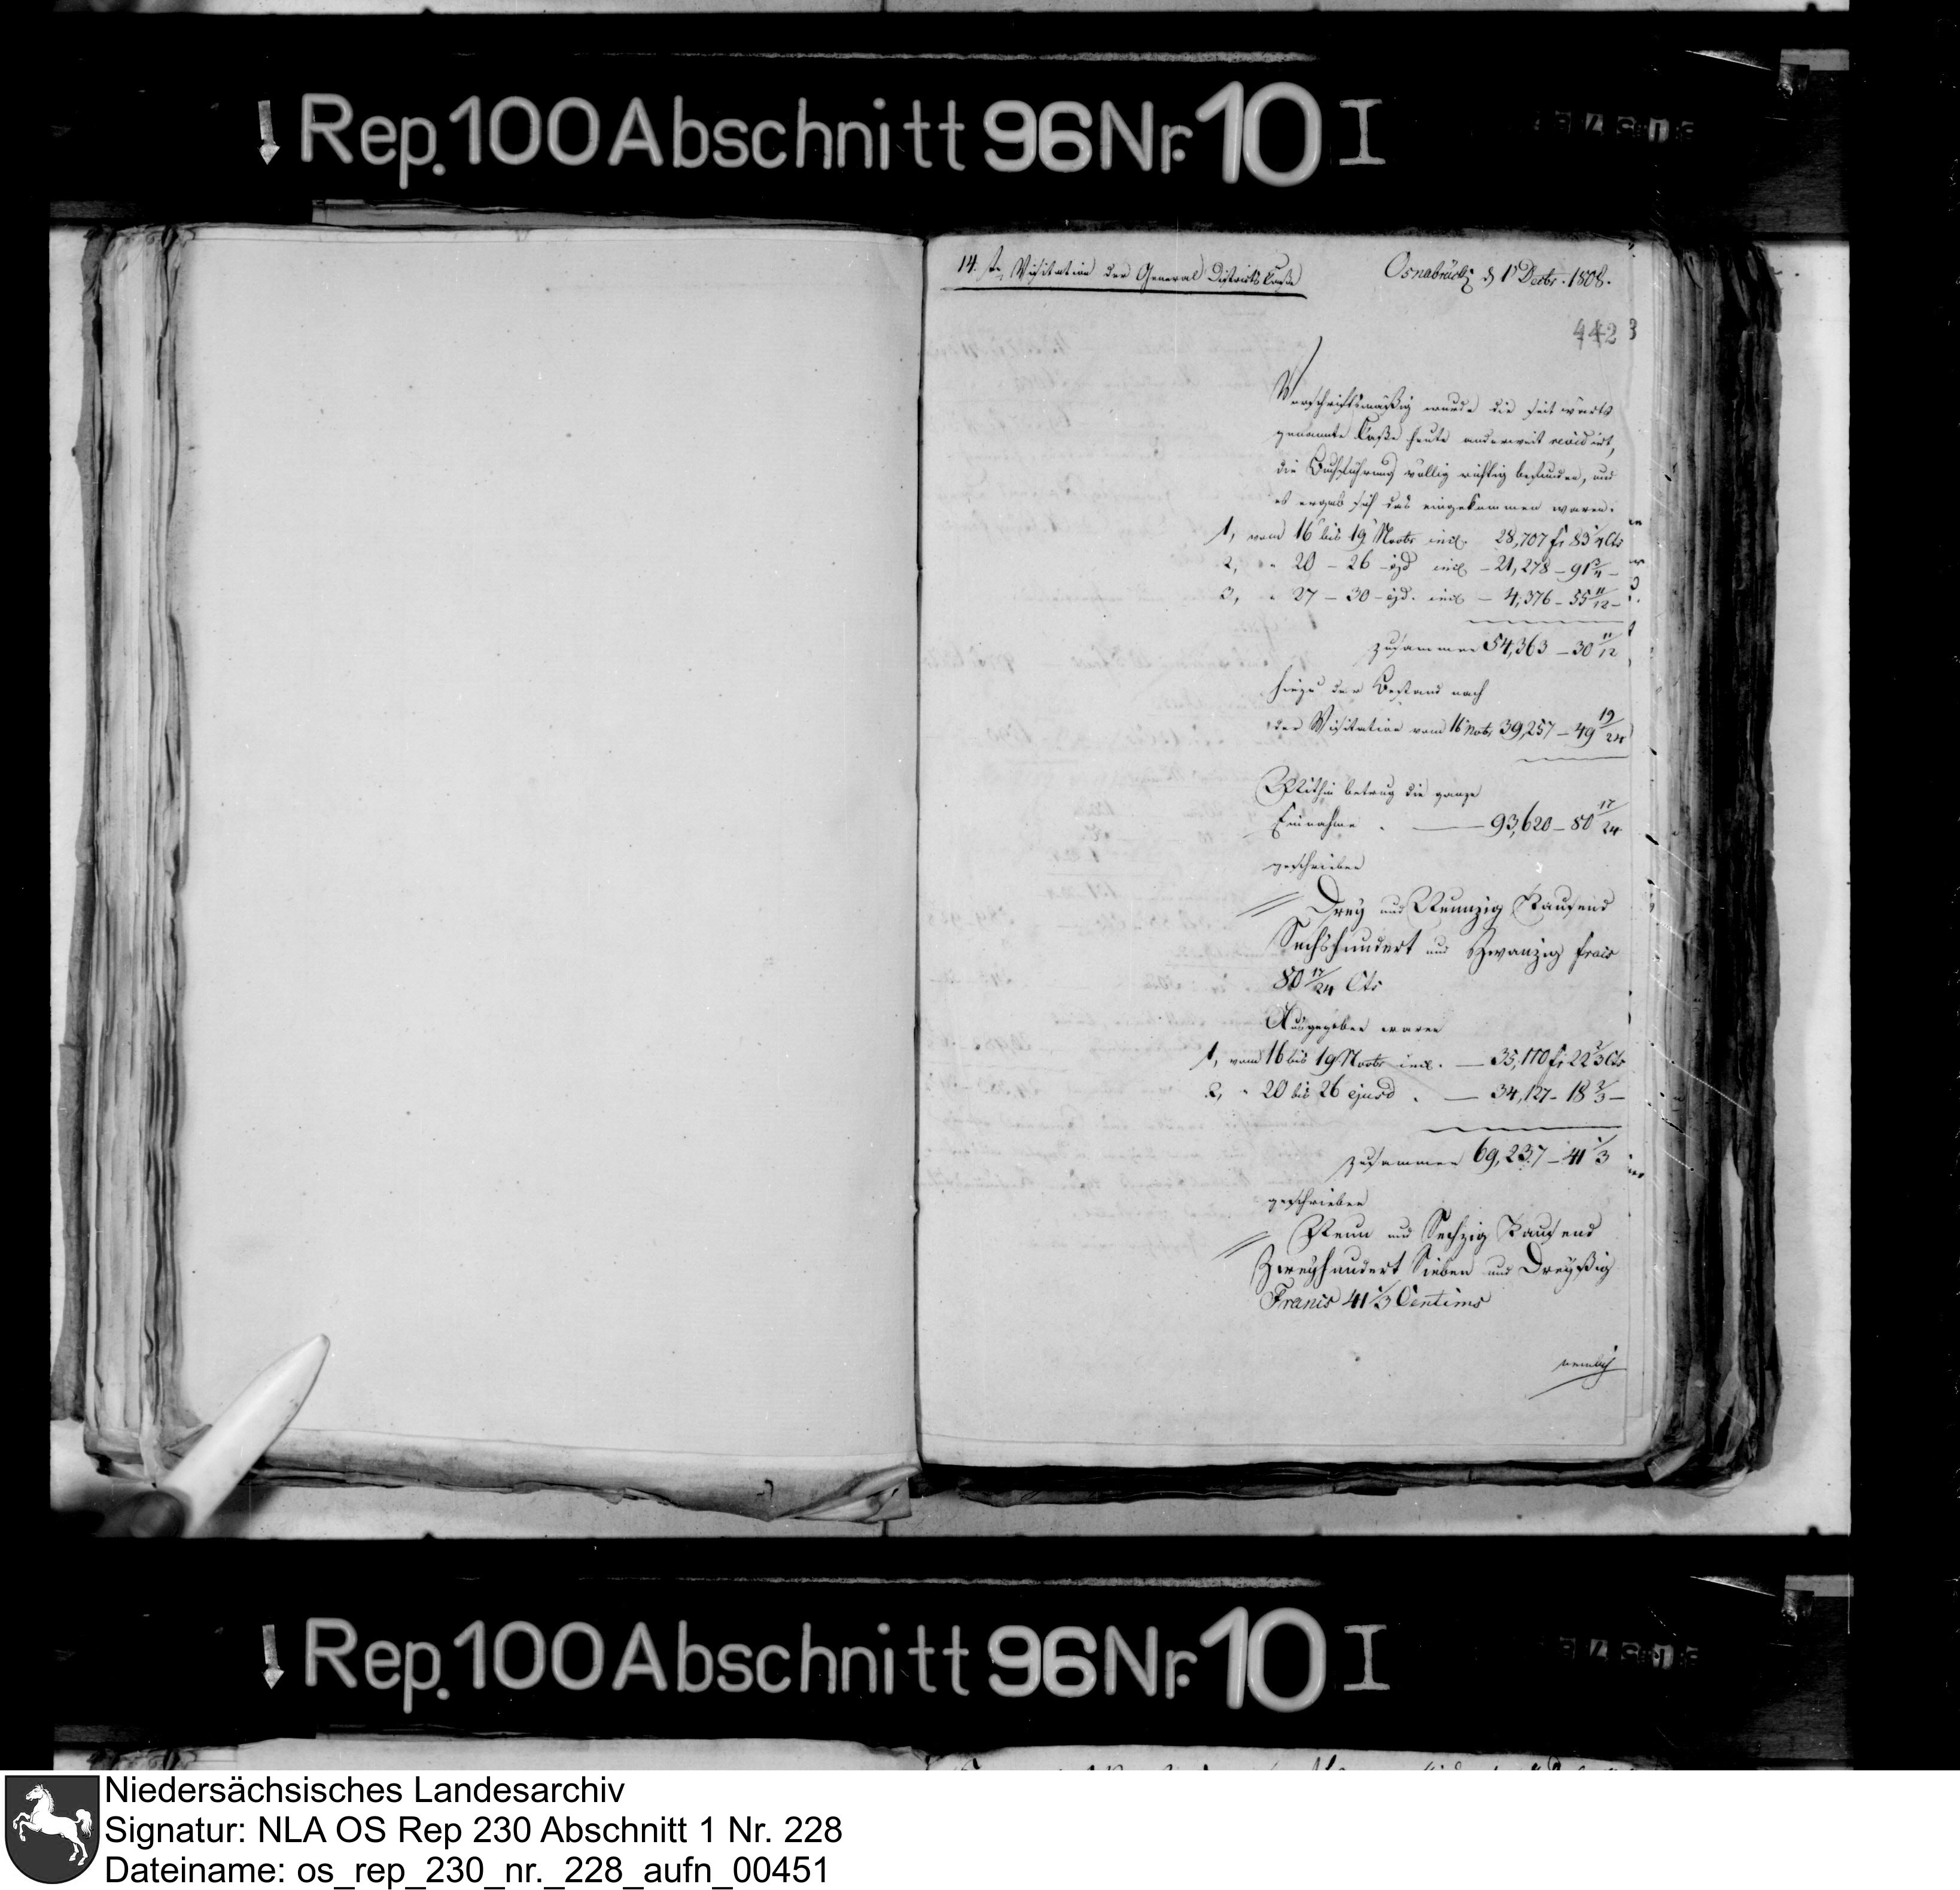 ↓ Rep. 100 Abschnitt 96 Nr. 10 I
14.te Visitation der General Districts Casse
Osnabrück d 1 Decbr. 1808.
442
3
Vorschriftsmäßig wurde die seitwärts
genannte Casse heute anderweit revidirt,
die Buchführung völlig richtig befunden, und
es ergab sich das eingekommen waren.
1, vom 16 bis 19 Novbr incl. 28,707 fr 83 1/4 Cts
2, " 20 – 26 – ejd incl – 21,278 – 91 3/4 –
3, " 27 – 30 – ejd. incl – 4,376 – 55 11/12 –
zusammen 54,363 – 30 11/12
hiezu der Bestand nach
der Visitation vom 16 Novb. 39,257 – 49 19/24
Mithin betrug die ganze
Einnahme . — 93,620 – 80 17/24
geschrieben
Drey und Neunzig Tausend
Sechshundert und Zwanzig Francs
80 17/24 Cts
Ausgegeben waren
1, vom 16 bis 19 Novbr incl. — 35,110 fr 22 2/3 Cts
2, " 20 bis 26 ejusd . — 34,127 – 18 2/3 –
zusammen 69,237 – 41 1/3
geschrieben
Neun und Sechzig Tausend
Zweyhundert Sieben und Dreyßig
Francs 41 1/3 Centims
nemlich
↓ Rep. 100 Abschnitt 96 Nr. 10 I
Niedersächsisches Landesarchiv
Signatur: NLA OS Rep 230 Abschnitt 1 Nr. 228
Dateiname: os_rep_230_nr._228_aufn_00451